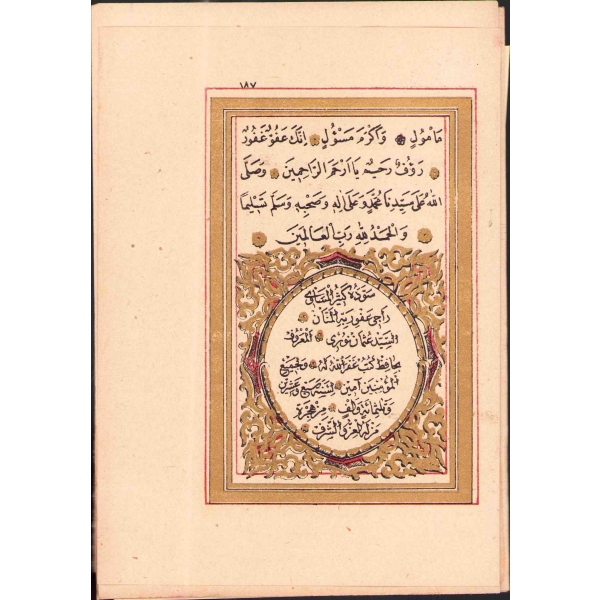 ١٨٧
مَأْمُولٍ وَاَكْرَمَ مَسْؤُلٍ اِنَّكَ عَفُوٌّ غَفُورٌ
رَؤُفٌ رَحِيمٌ يَا اَرْحَمَ الرَّاحِمِينَ وَصَلَّى
اللّٰهُ عَلٰى سَيِّدِنَا مُحَمَّدٍ وَعَلٰى اٰلِهِ وَصَحْبِهِ وَسَلَّمَ تَسْلِيمًا
وَالْحَمْدُ لِلّٰهِ رَبِّ الْعَالَمِينَ
سوده كثير المعاصي
راجي عفو ربه المنان
السيد عثمان نوري المعروف
بحافظ كتب غفر الله له ولجميع
المؤمنين آمين لسنة وعشرين
وثلثمائة والف من هجرة
من له العز والشرف